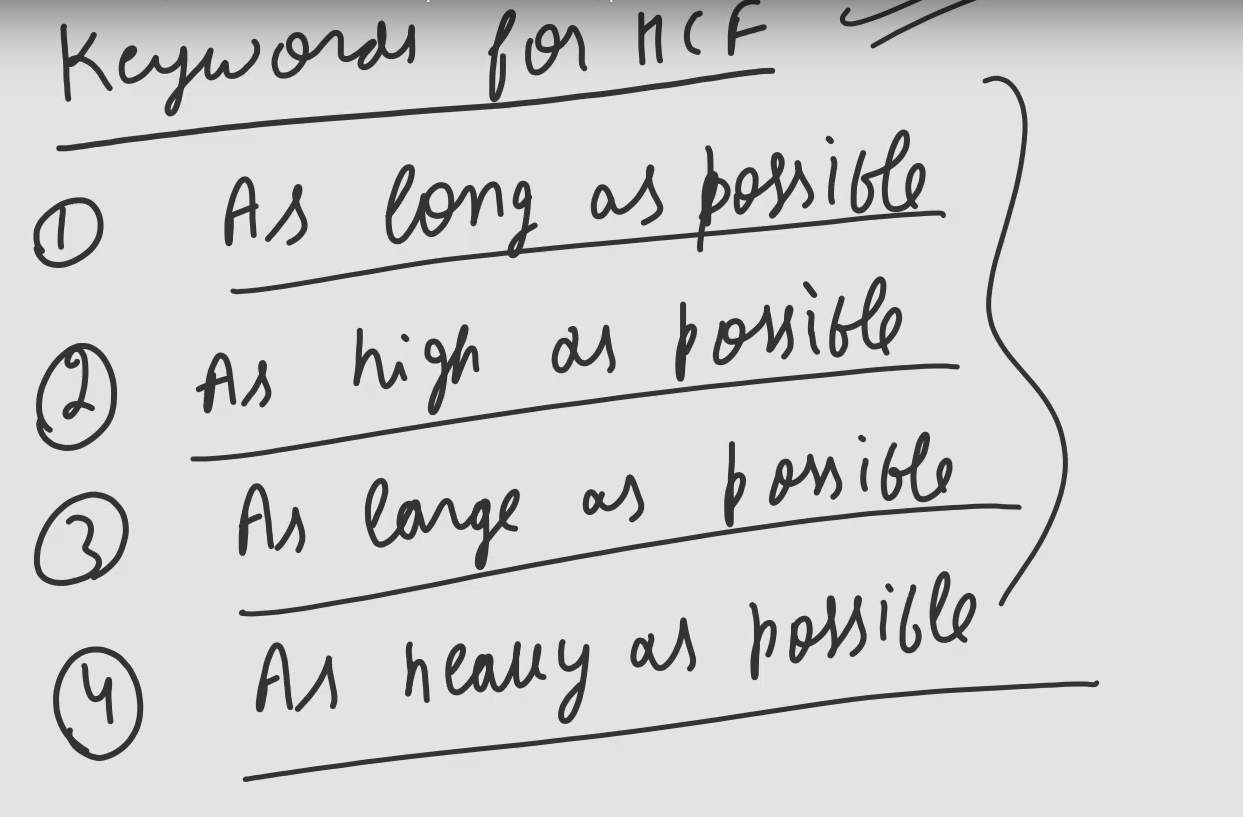 Keywords for HCF
① As long as possible
② As high as possible
③ As large as possible
④ As heavy as possible